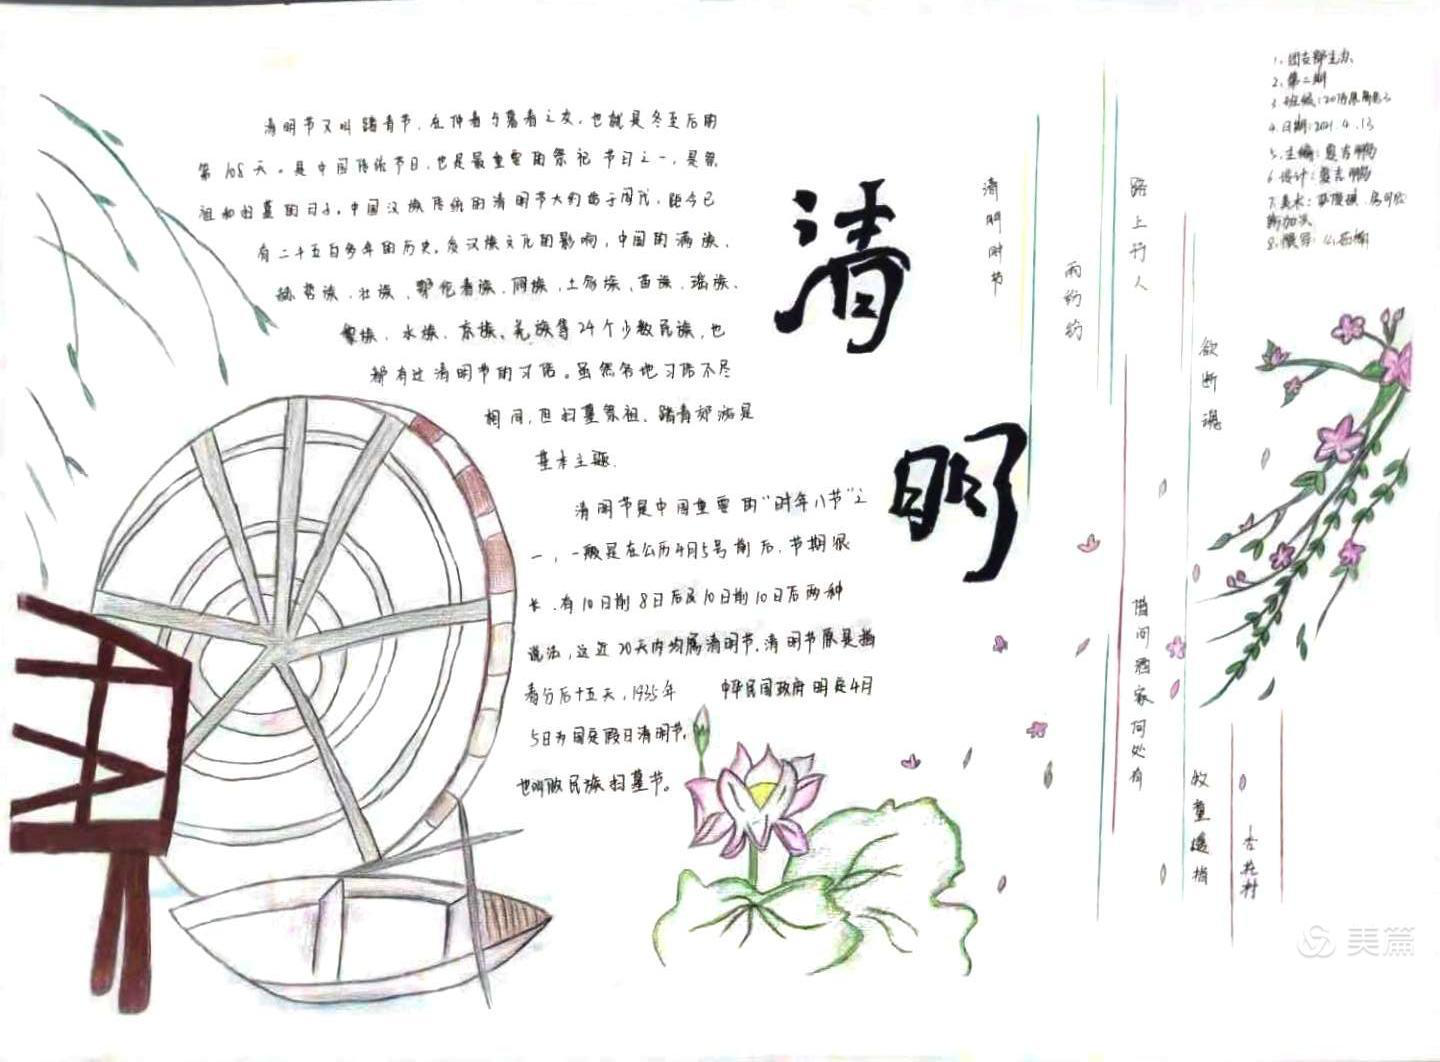 清明节又叫踏青节，在仲春与暮春之交，也就是冬至后的
第108天。是中国传统节日，也是最重要的祭祀节日之一，是祭
祖和扫墓的日子。中国汉族传统的清明节大约始于周代，距今已
有二千五百多年的历史。受汉族文化的影响，中国的满族、
赫哲族、壮族、鄂伦春族、侗族、土家族、苗族、瑶族、
黎族、水族、京族、羌族等24个少数民族，也
都有过清明节的习俗。虽然各地习俗不尽
相同，但扫墓祭祖、踏青郊游是
基本主题.
清明节是中国重要的“时年八节”之
一，一般是在公历4月5号前后，节期很
长.有10日前8日后及10日前10日后两种
说法，这近20天内均属清明节。清明节原是指
春分后十五天，1935年 中华民国政府明定4月
5日为国定假日清明节。
也叫做民族扫墓节。
清明
清明时节
雨纷纷
路上行人
欲断魂
借问酒家何处有
牧童遥指
杏花村
1、团支部主办
2、第二期
3 班级:20
4.日期:2021.4.13
5、主编:
6 设计:
7.美术:
8.
美篇